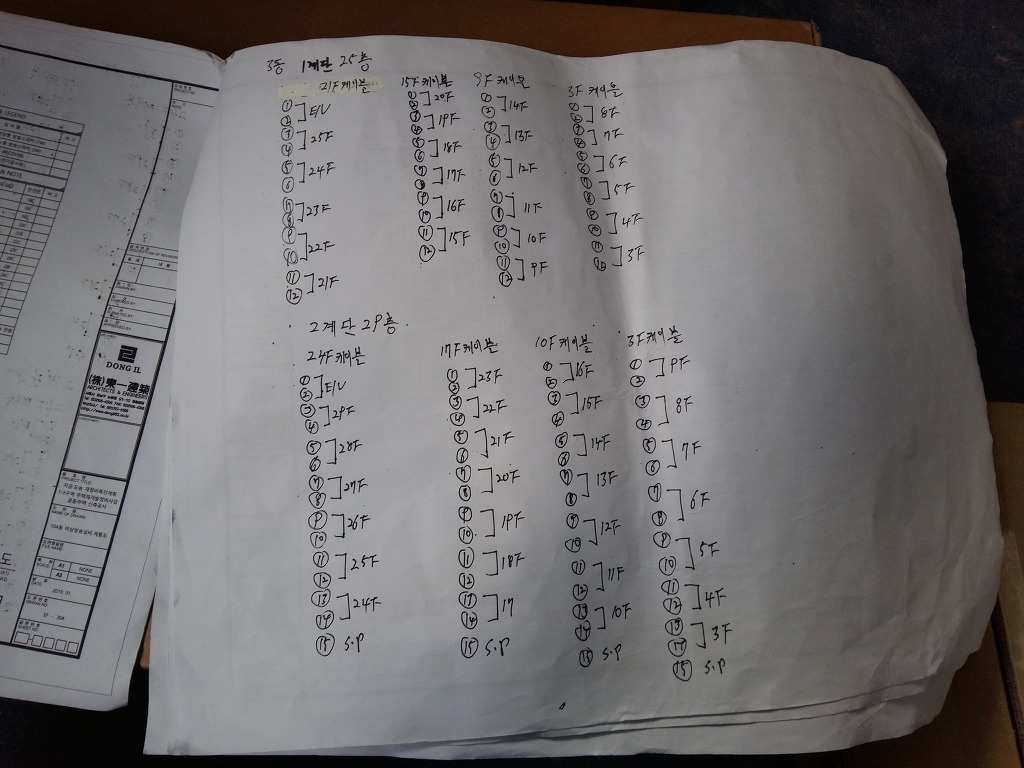 3동 1계단 25층
21F케이블
① ② ] E/V
③ ④ ] 25F
⑤ ⑥ ] 24F
⑦ ⑧ ] 23F
⑨ ⑩ ] 22F
⑪ ⑫ ] 21F
15F케이블
① ② ] 20F
③ ④ ] 19F
⑤ ⑥ ] 18F
⑦ ⑧ ] 17F
⑨ ⑩ ] 16F
⑪ ⑫ ] 15F
9F케이블
① ② ] 14F
③ ④ ] 13F
⑤ ⑥ ] 12F
⑦ ⑧ ] 11F
⑨ ⑩ ] 10F
⑪ ⑫ ] 9F
3F케이블
① ② ] 8F
③ ④ ] 7F
⑤ ⑥ ] 6F
⑦ ⑧ ] 5F
⑨ ⑩ ] 4F
⑪ ⑫ ] 3F
2계단 29층
24F케이블
① ② ] E/V
③ ④ ] 29F
⑤ ⑥ ] 28F
⑦ ⑧ ] 27F
⑨ ⑩ ] 26F
⑪ ⑫ ] 25F
⑬ ⑭ ] 24F
⑮ S.P
17F케이블
① ② ] 23F
③ ④ ] 22F
⑤ ⑥ ] 21F
⑦ ⑧ ] 20F
⑨ ⑩ ] 19F
⑪ ⑫ ] 18F
⑬ ⑭ ] 17
⑮ S.P
10F케이블
① ② ] 16F
③ ④ ] 15F
⑤ ⑥ ] 14F
⑦ ⑧ ] 13F
⑨ ⑩ ] 12F
⑪ ⑫ ] 11F
⑬ ⑭ ] 10F
⑮ S.P
3F케이블
① ② ] 9F
③ ④ ] 8F
⑤ ⑥ ] 7F
⑦ ⑧ ] 6F
⑨ ⑩ ] 5F
⑪ ⑫ ] 4F
⑬ ⑭ ] 3F
⑮ S.P
LEGEND
NOTE
DONG IL
(株)東一建築
ARCHITECTS & ENGINEERS
PROJECT TITLE
NAME OF DRAWING
A1 NONE
A3 NONE
2019. 01.